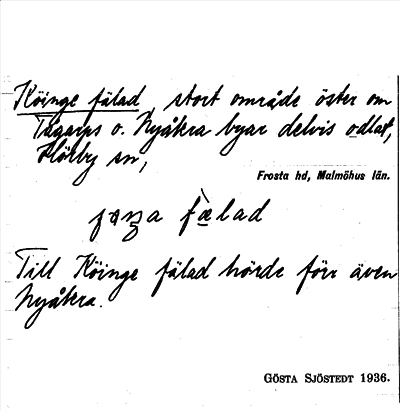 Köinge fälad, stort område öster om
Tågarps o. Nyåkra byar delvis odlat,
Hörby sn,
Frosta hd, Malmöhus län.
fælad
Till Köinge fälad hörde förr även
Nyåkra.
GÖSTA SJÖSTEDT 1936.